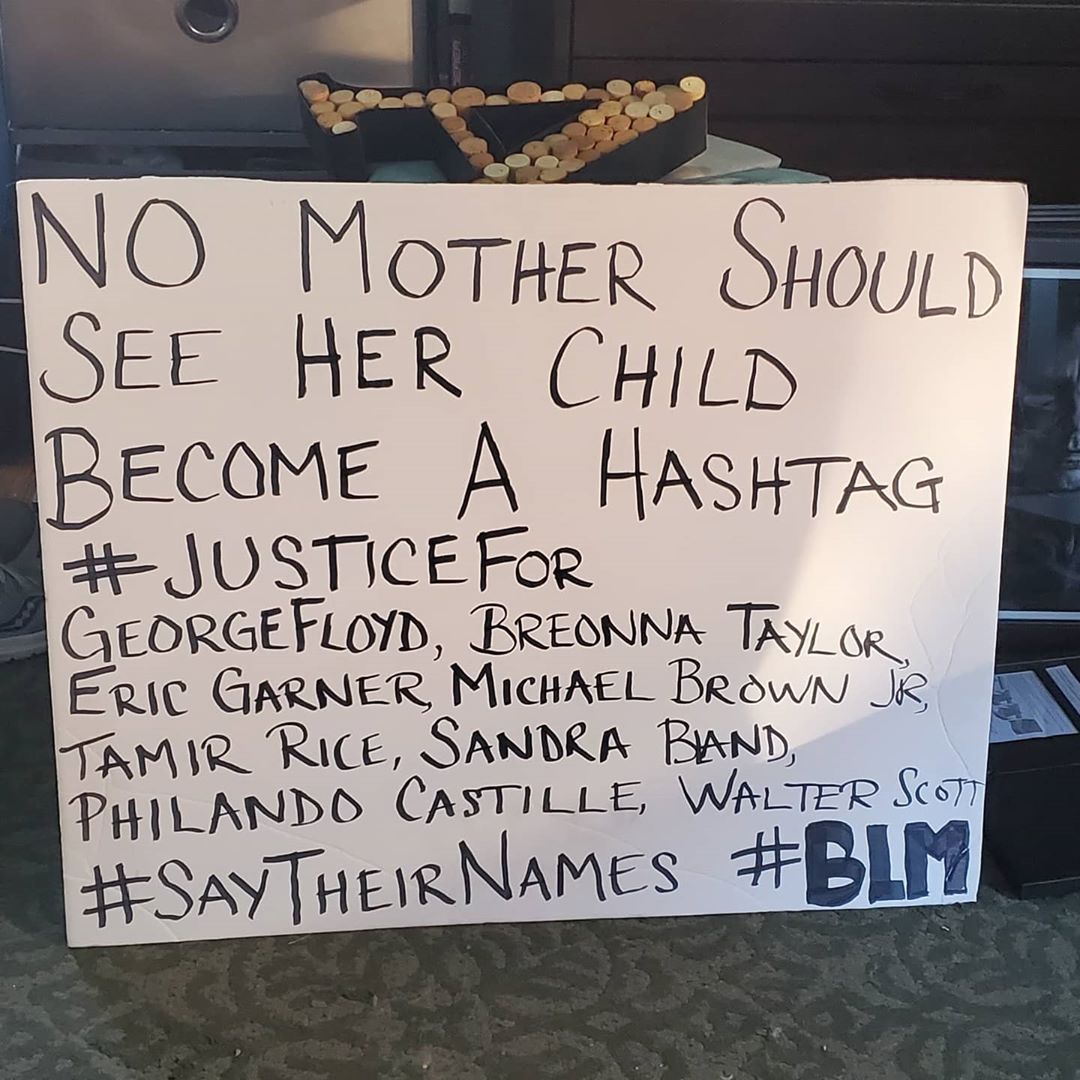 NO MOTHER SHOULD
SEE HER CHILD
BECOME A HASHTAG
#JUSTICEFOR
GEORGEFLOYD, BREONNA TAYLOR,
ERIC GARNER, MICHAEL BROWN JR,
TAMIR RICE, SANDRA BLAND,
PHILANDO CASTILLE, WALTER SCOTT
#SAYTHEIRNAMES #BLM